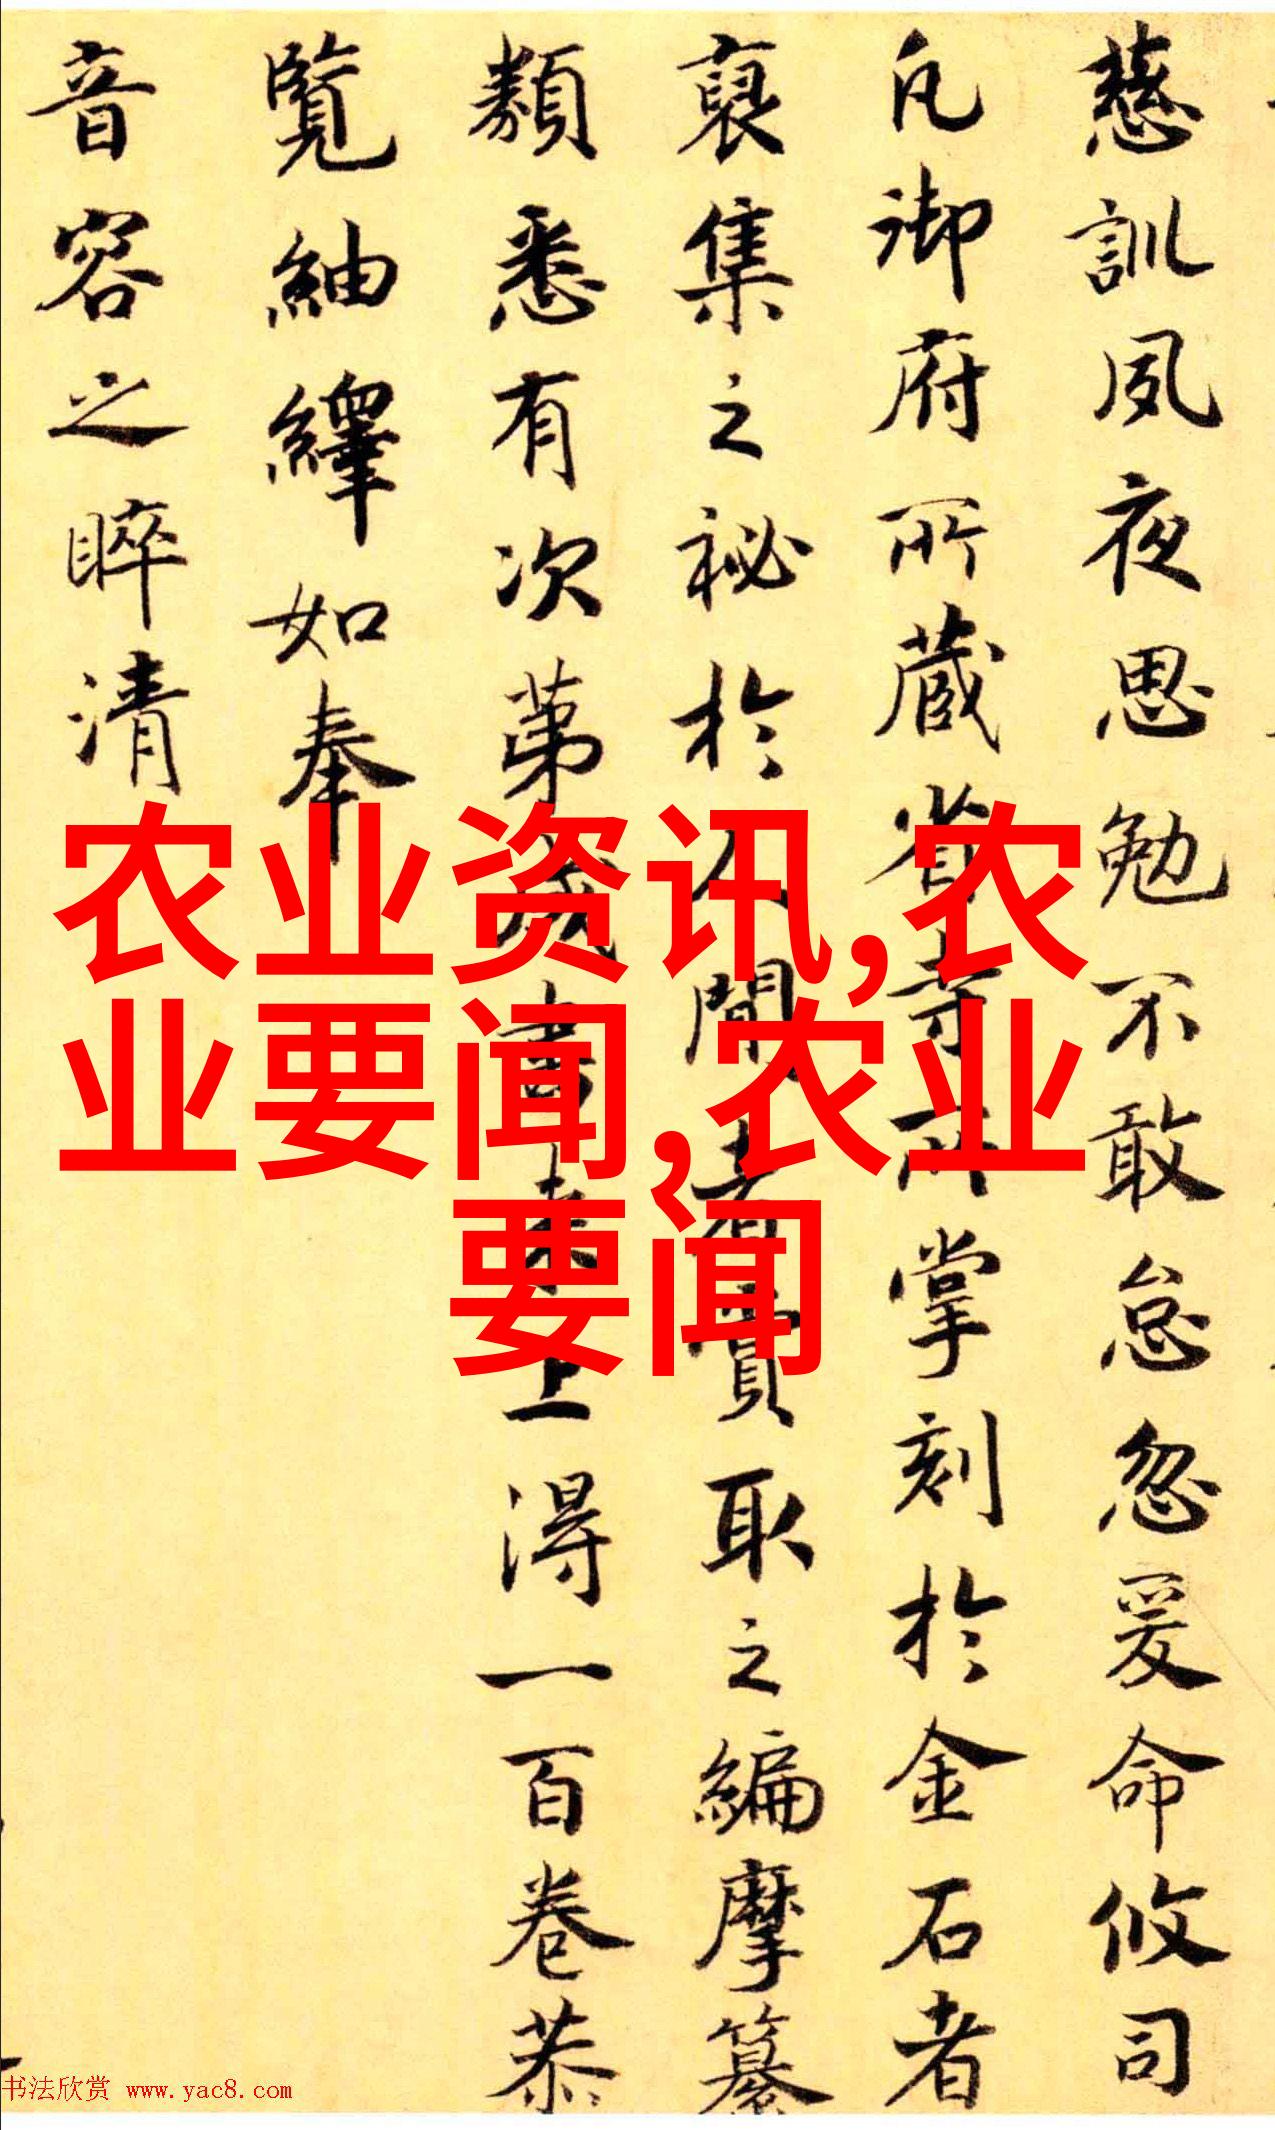 慈訓夙夜思勉不敢怠忽爰命攸司
凡御府所藏省寺所掌刻於金石者
裒集之祕於人間者賞取之編摩纂
類悉有次第成書來上得一百卷恭
覽紬繹如奉
音容之睟清
农业资讯,农
业要闻,农业
要闻
书法欣赏 www.yac8.com